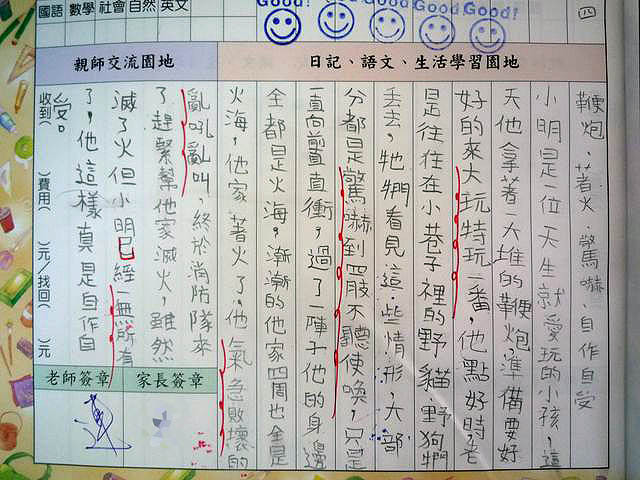 國語 數學 社會 自然 英文
Good! Good Good Good!
八
日記、語文、生活學習園地
親師交流園地
鞭炮、著火、驚嚇、自作自受
小明是一位天生就愛玩的小孩,這
天他拿著一大堆的鞭炮,準備要好
好的來大玩特玩一番,他點好時,老
是往往在小巷子裡的野貓、野狗們
丟去,牠們看見這些情形,大部
分都是驚嚇到四肢不聽使喚,只是
一直向前直衝,過了一陣子他的身邊
全都是火海,漸漸的他家四周也全是
火海,他家著火了,他氣急敗壞的
亂吼亂叫,終於消防隊來
了,趕緊幫他家滅火,雖然
滅了火但小明已經一無所有
了,他這樣真是自作自
受。
收到( )費用( )元/找回( )元
家長簽章
老師簽章